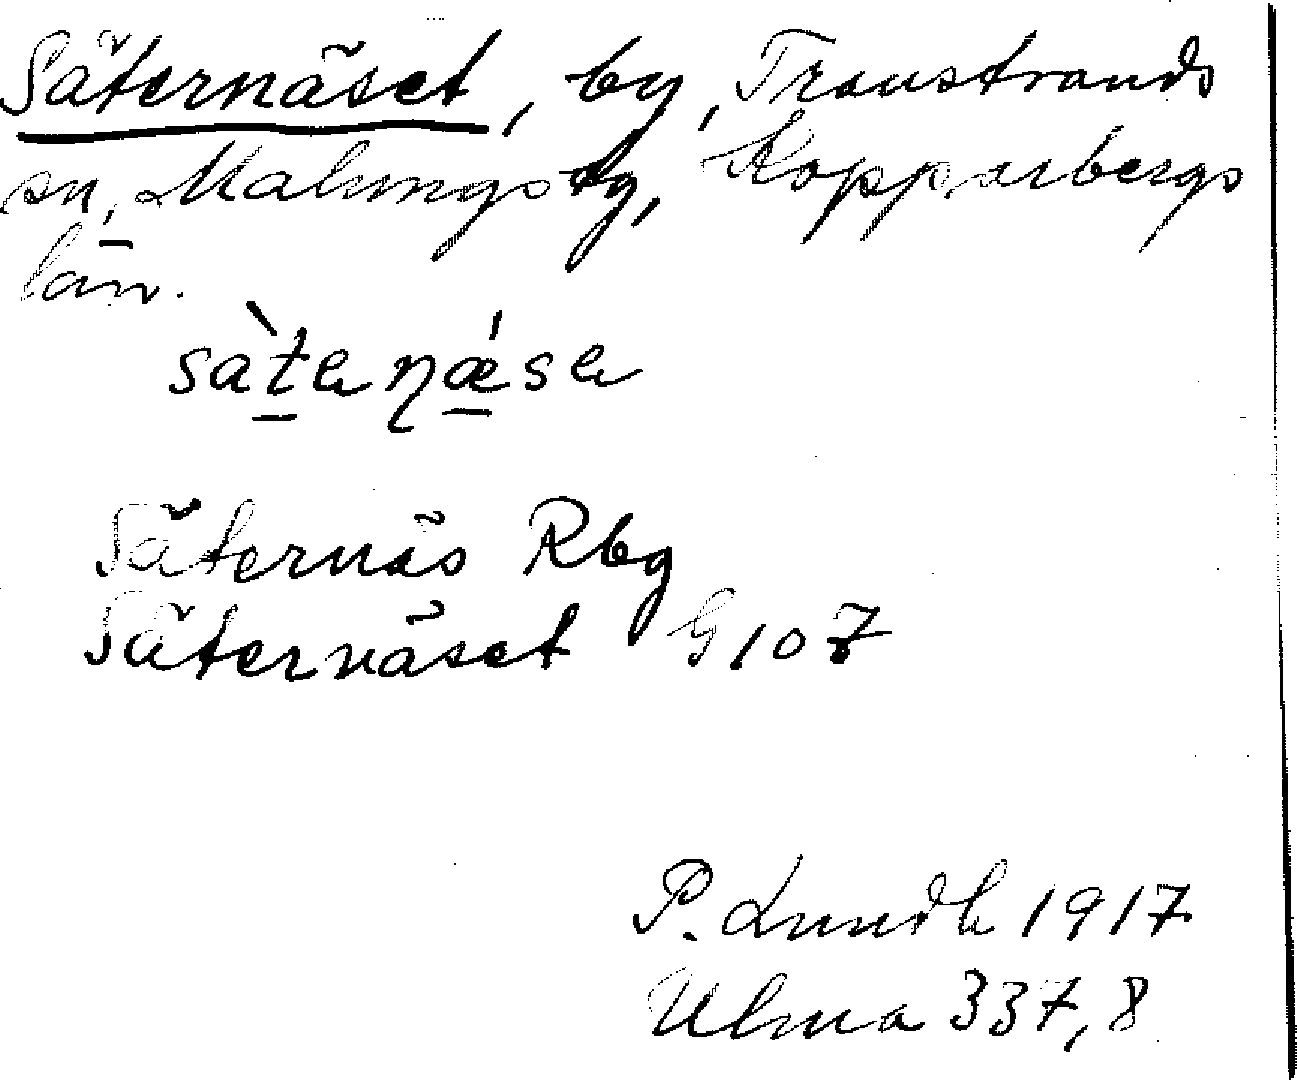 Säternäset, by, Transtrands
sn, Malungs tg, Kopparbergs
län.
Säternäs Rbg
Säternäset G 107
P. Lundh 1917
Ulma 337,8